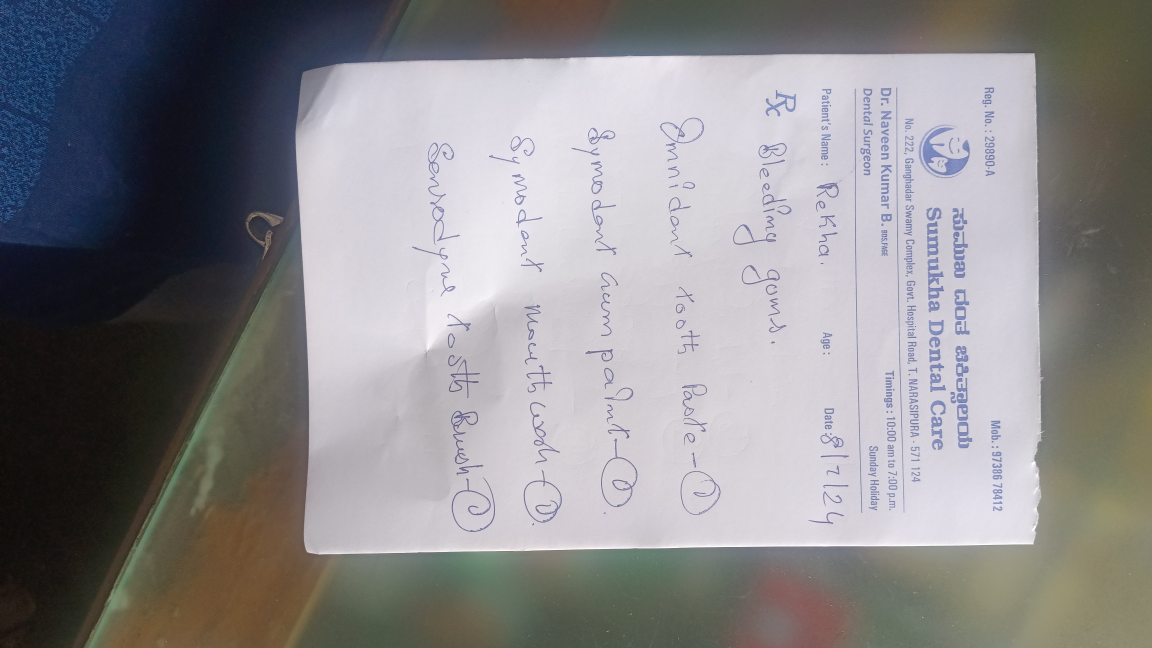 Reg. No. : 29890-A Mob. : 97386 78412
ಸುಮುಖ ದಂತ ಚಿಕಿತ್ಸಾಲಯ
Sumukha Dental Care
No. 222, Ganghadar Swamy Complex, Govt. Hospital Road, T. NARASIPURA - 571 124
Dr. Naveen Kumar B. BDS,FAGE Timings : 10:00 am to 7:00 p.m.
Dental Surgeon Sunday Holiday
Patient's Name : Rekha. Age : Date : 8/2/24
Rx Bleeding goms.
Omnidant tooth Paste - 1
Symodant Gum paint - 1.
Symodant Mouth wash - 1.
Sensodyne tooth Brush - 1